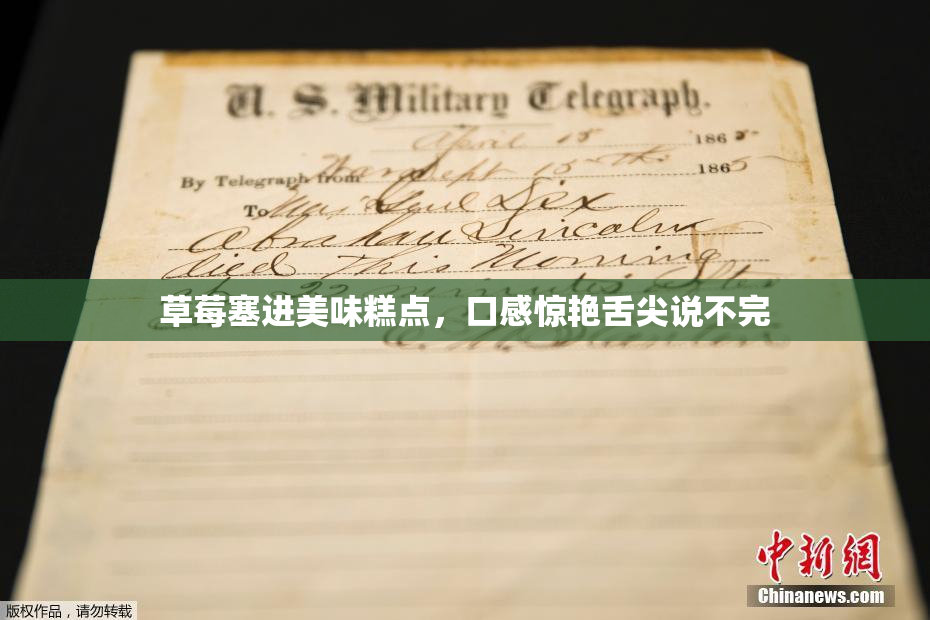 U. S. Military Telegraph.
April 15 1865
By Telegraph from War Dept 15th 1865
To Maj Genl Dix
Abraham Lincoln
died This Morning
22 minutes after
草莓塞进美味糕点，口感惊艳舌尖说不完
中新网
Chinanews.com
版权作品，请勿转载